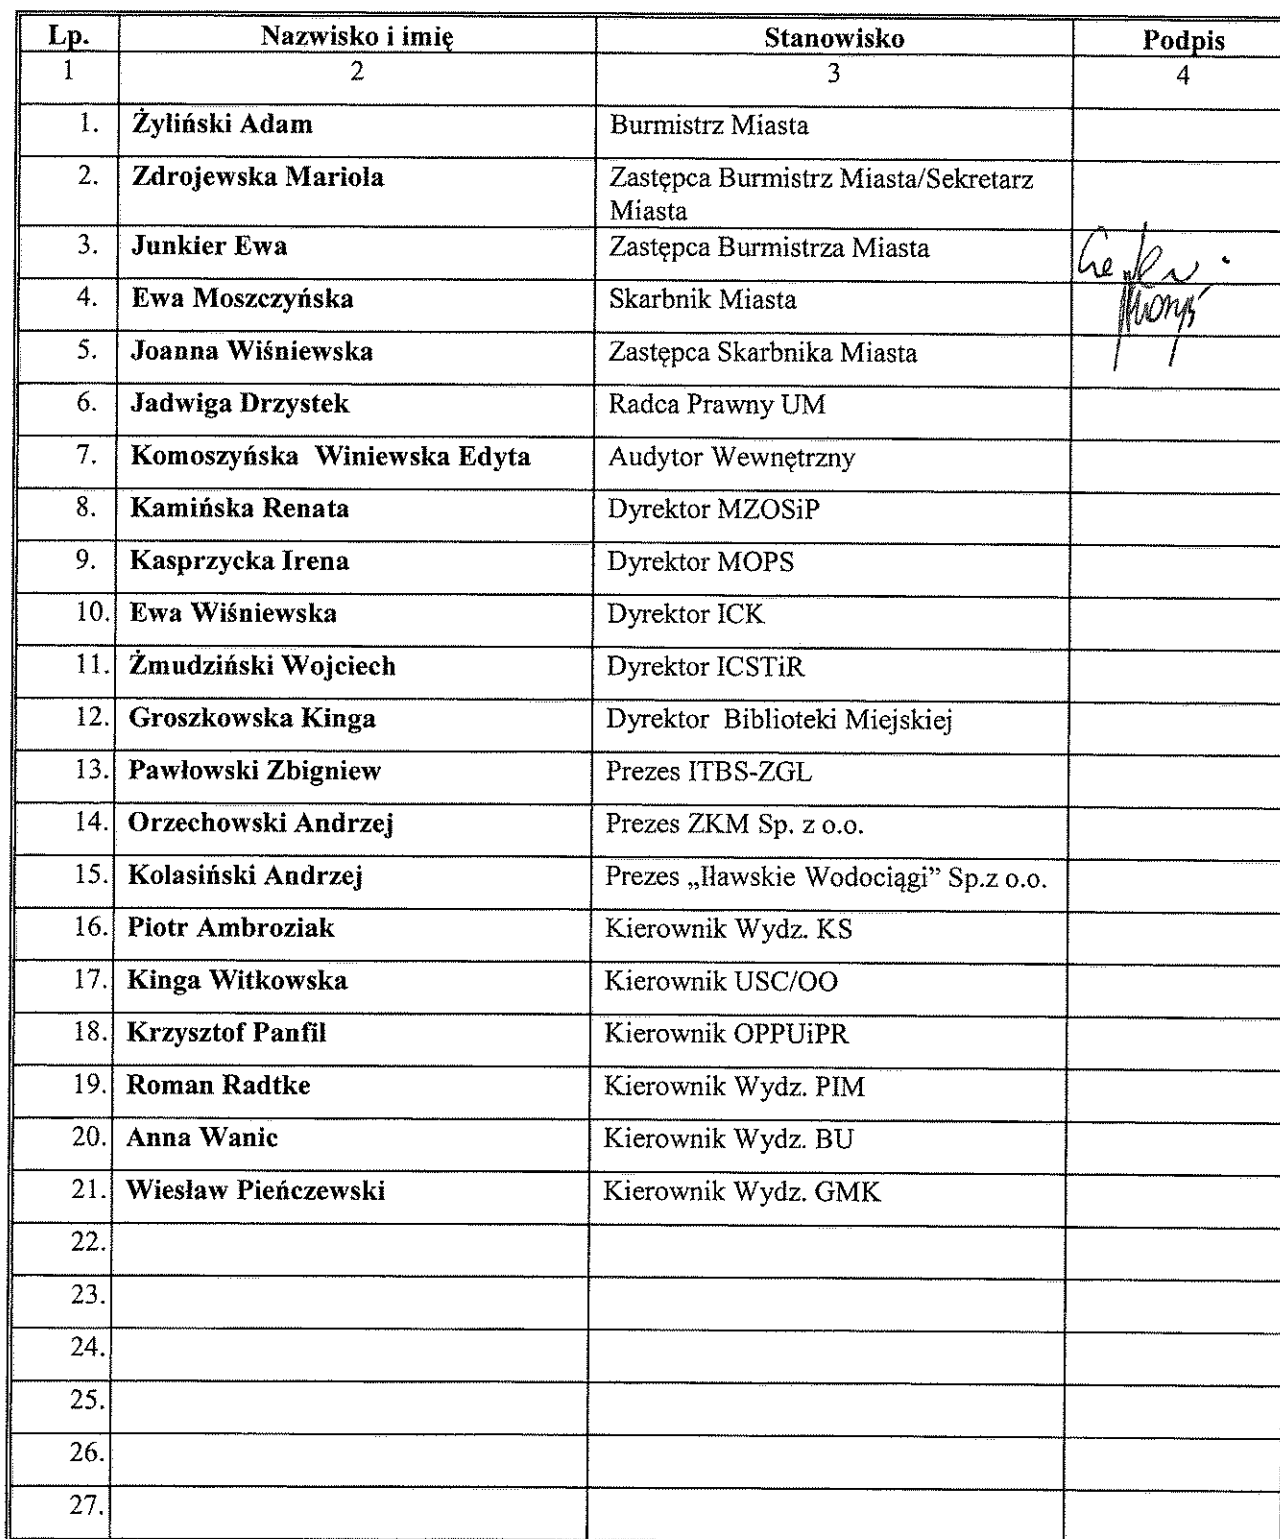 Lp. Nazwisko i imię Stanowisko Podpis
1 2 3 4
1. Żyliński Adam Burmistrz Miasta
2. Zdrojewska Mariola Zastępca Burmistrz Miasta/Sekretarz
Miasta
3. Junkier Ewa Zastępca Burmistrza Miasta
4. Ewa Moszczyńska Skarbnik Miasta
5. Joanna Wiśniewska Zastępca Skarbnika Miasta
6. Jadwiga Drzystek Radca Prawny UM
7. Komoszyńska Winiewska Edyta Audytor Wewnętrzny
8. Kamińska Renata Dyrektor MZOSiP
9. Kasprzycka Irena Dyrektor MOPS
10. Ewa Wiśniewska Dyrektor ICK
11. Żmudziński Wojciech Dyrektor ICSTiR
12. Groszkowska Kinga Dyrektor Biblioteki Miejskiej
13. Pawłowski Zbigniew Prezes ITBS-ZGL
14. Orzechowski Andrzej Prezes ZKM Sp. z o.o.
15. Kolasiński Andrzej Prezes „Iławskie Wodociągi” Sp.z o.o.
16. Piotr Ambroziak Kierownik Wydz. KS
17. Kinga Witkowska Kierownik USC/OO
18. Krzysztof Panfil Kierownik OPPUiPR
19. Roman Radtke Kierownik Wydz. PIM
20. Anna Wanic Kierownik Wydz. BU
21. Wiesław Pieńczewski Kierownik Wydz. GMK
22.
23.
24.
25.
26.
27.